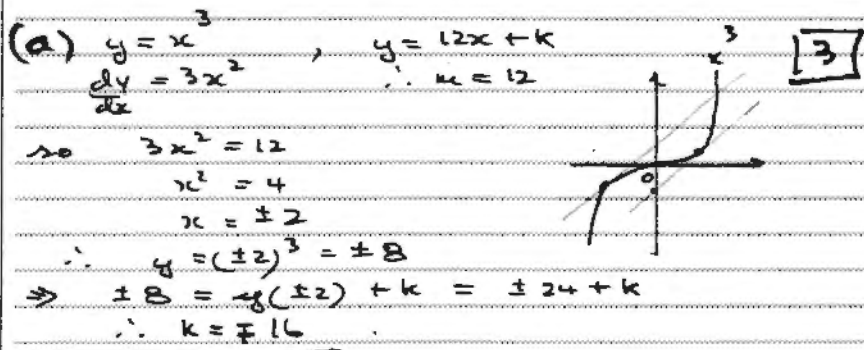 (a) y = x³ , y = 12x + k
x³
3
dy/dx = 3x² ∴ m = 12
so 3x² = 12
x² = 4
x = ± 2
0
∴ y = (±2)³ = ± 8
⇒ ± 8 = (±2) + k = ± 24 + k
∴ k = ∓ 16